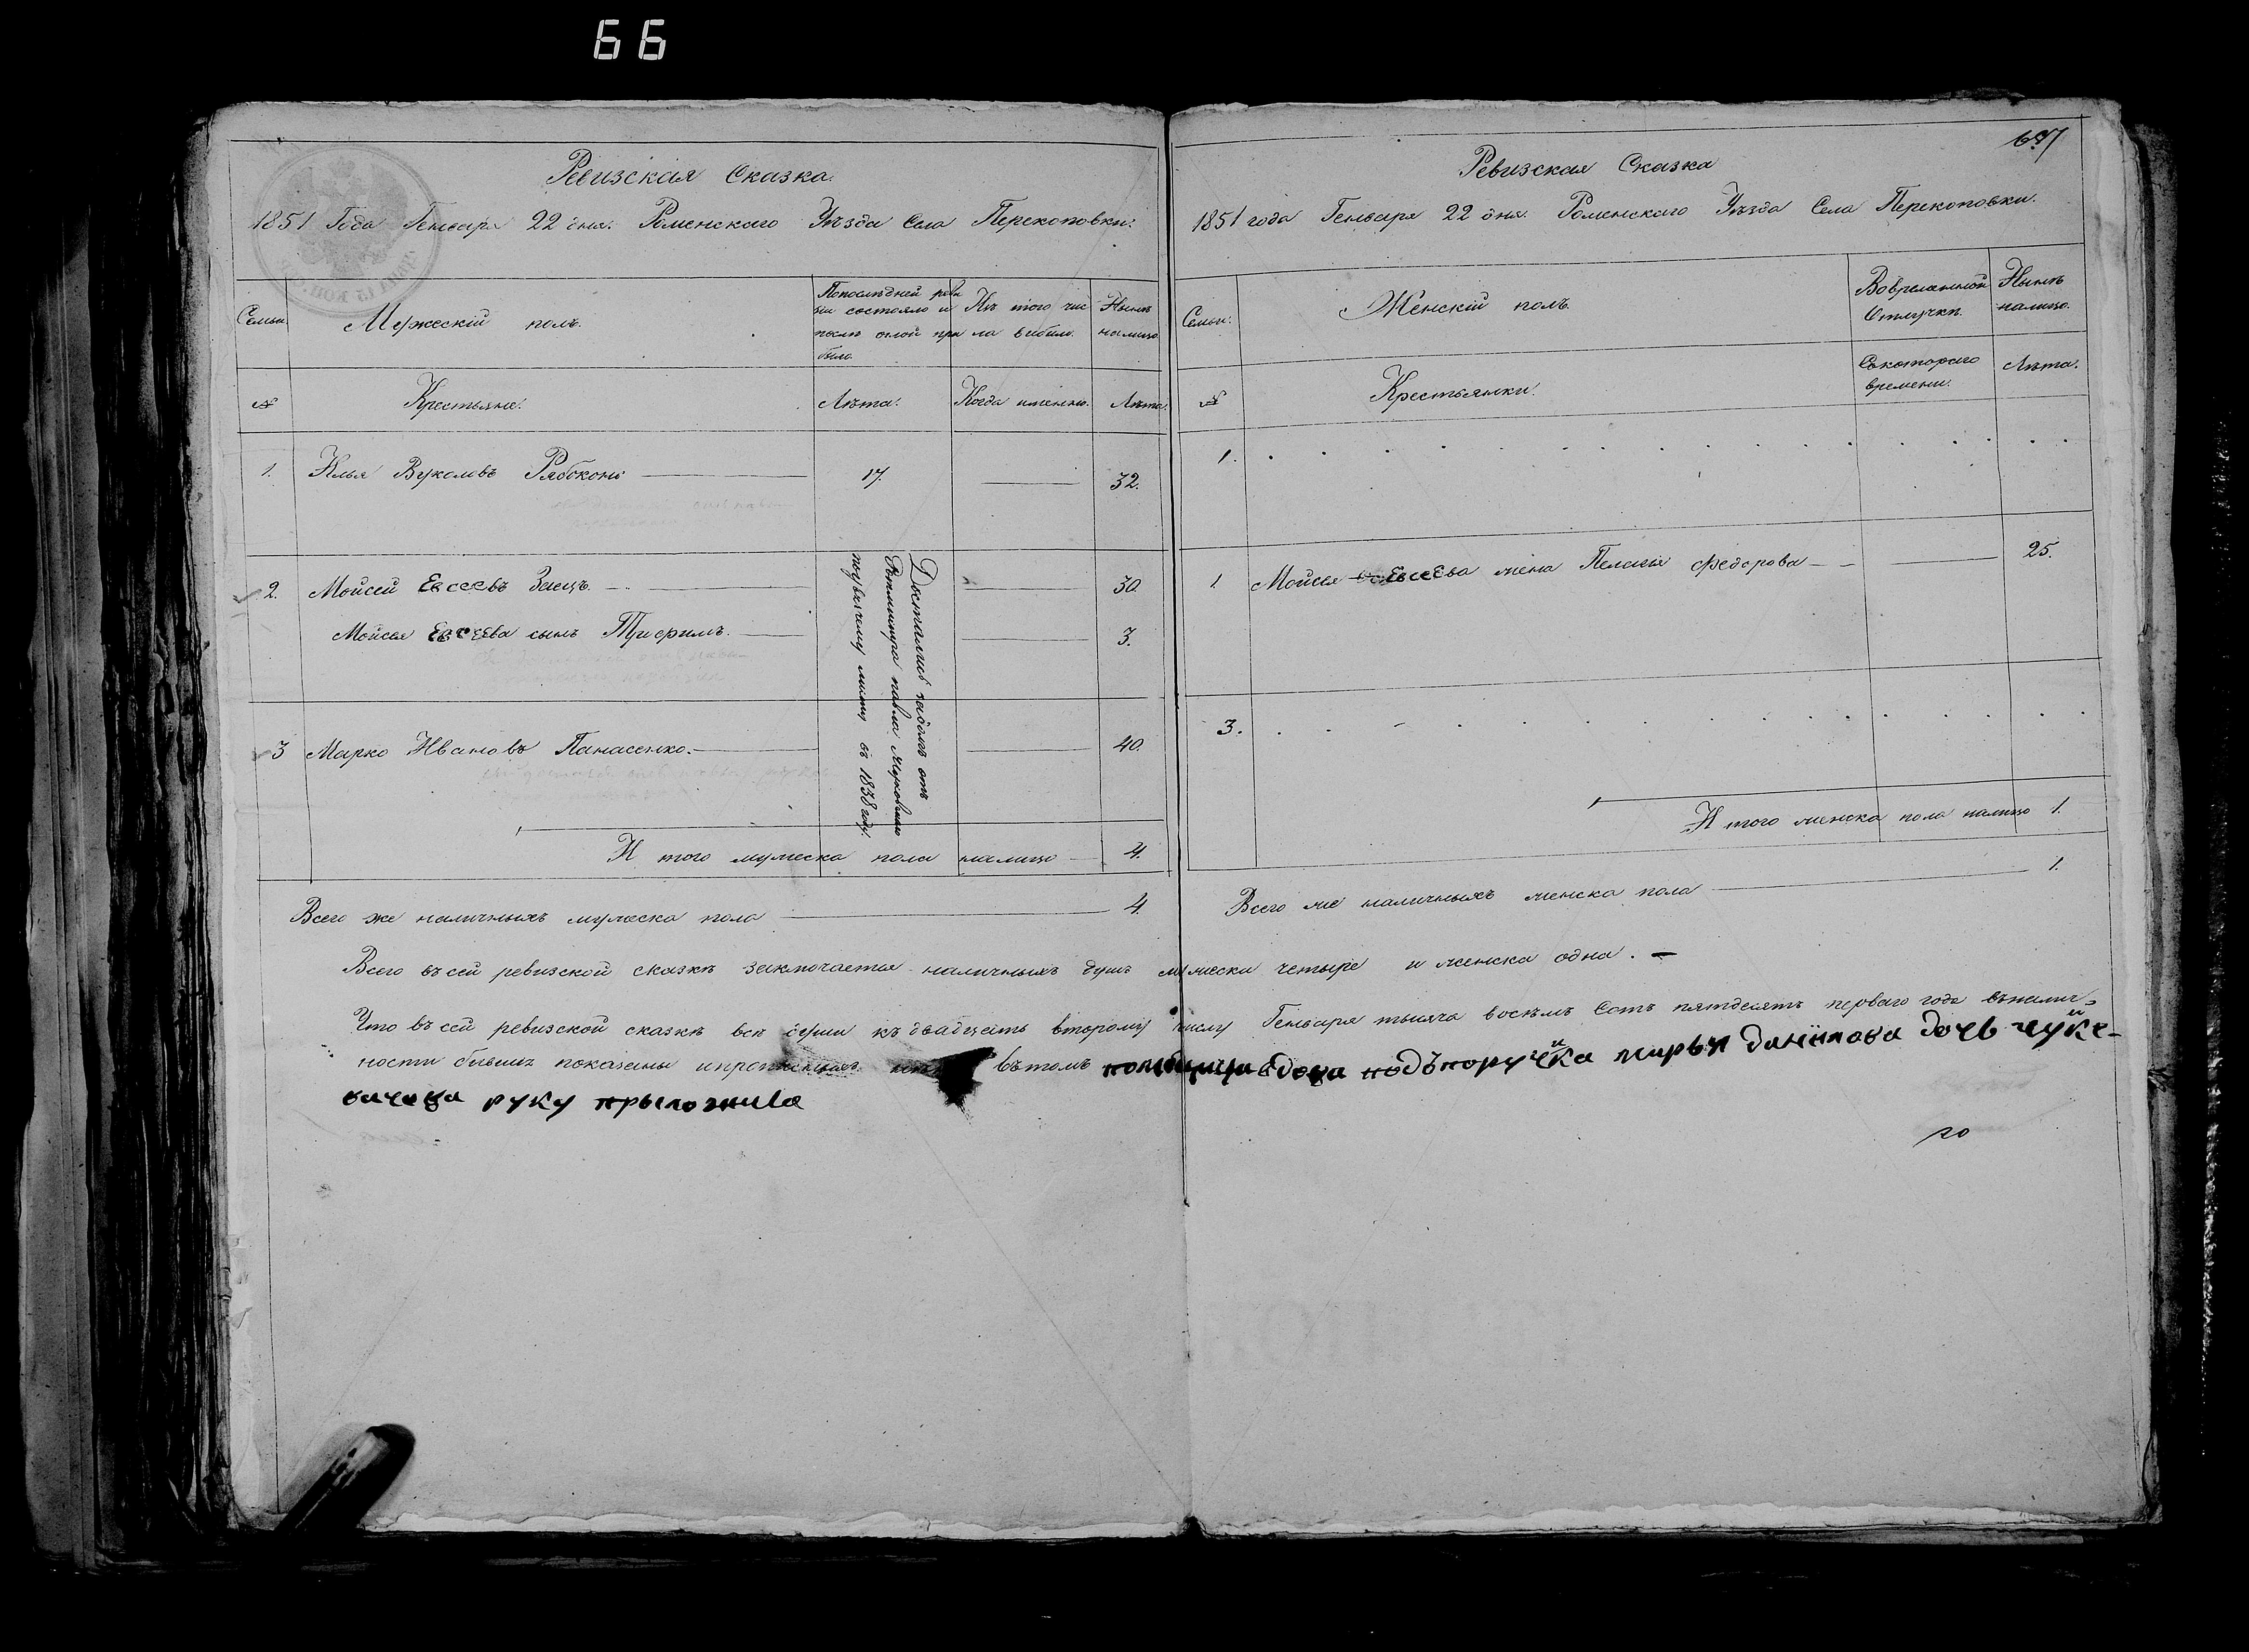 66
697
Ревизская Сказка.
1851 Года Генваря 22 дня. Роменскаго Уѣзда Села Перекоповки.
Семьи.
Мужескій полъ.
Попослѣдней реви
зіи состояло и
послѣ оной при
было.
Изъ того чис
ла выбыло.
Нынѣ
налицо.
№
Крестьяне.
Лѣта.
Когда именно.
Лѣта.
1. Илья Вуколовъ Рябоконь 17. 32.
2. Мойсей Евсеевъ Заецъ. 30.
Мойсея Евсеева сынъ Трифимъ. 3.
3 Марко Ивановъ Панасенко. 40.
Достались
отъ
Ротмистра павла
въ 1838 году.
И того мужеска пола налицо 4.
Всего же наличныхъ мужеска пола 4.
Ревизская Сказка
1851 года Генваря 22 дня. Роменскаго Уѣзда Села Перекоповки.
Семьи.
Женскій полъ.
Вовременной
Отлучкѣ.
Нынѣ
налицо.
№
Крестьянки.
Скотораго
времени.
Лѣта.
1.
1 Мойсея Евсеева жена Пелагія Федорова 25.
3.
И того женска пола налицо 1.
Всего же наличныхъ женска пола 1.
Всего въ сей ревизской сказкѣ заключается наличныхъ душъ мужеска четыре и женска одна.
Что въ сей ревизской сказкѣ всѣ души къ двадцать второму числу Генваря тысяча восемъ Сотъ пятдесятъ перваго года въналич=
ности бывшіе показаны въ томъ вдова подъпоручика марья данилова дочь
руку прыложила